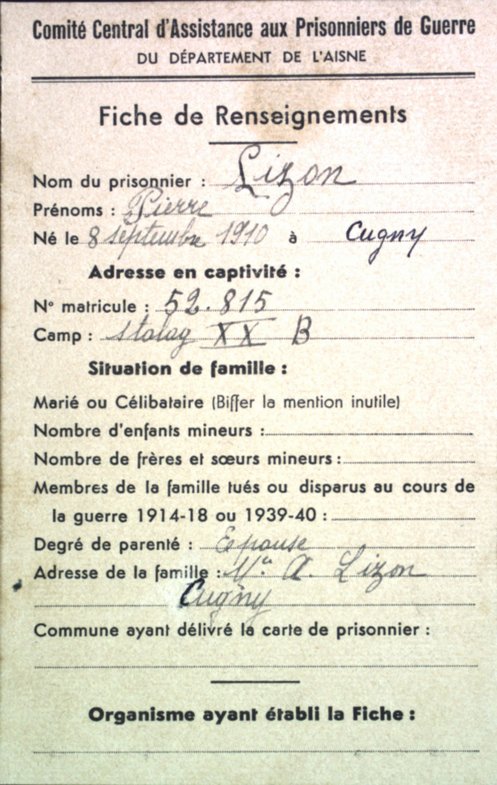 Comité Central d'Assistance aux Prisonniers de Guerre
DU DÉPARTEMENT DE L'AISNE
Fiche de Renseignements
Nom du prisonnier : Lizon
Prénoms : Pierre
Né le 8 septembre 1910 à Cugny
Adresse en captivité :
N° matricule : 52.815
Camp : stalag XX B
Situation de famille :
Marié ou Célibataire (Biffer la mention inutile)
Nombre d'enfants mineurs :
Nombre de frères et sœurs mineurs :
Membres de la famille tués ou disparus au cours de
la guerre 1914-18 ou 1939-40 :
Degré de parenté : Epouse
Adresse de la famille : Lizon
Cugny
Commune ayant délivré la carte de prisonnier :
Organisme ayant établi la Fiche :